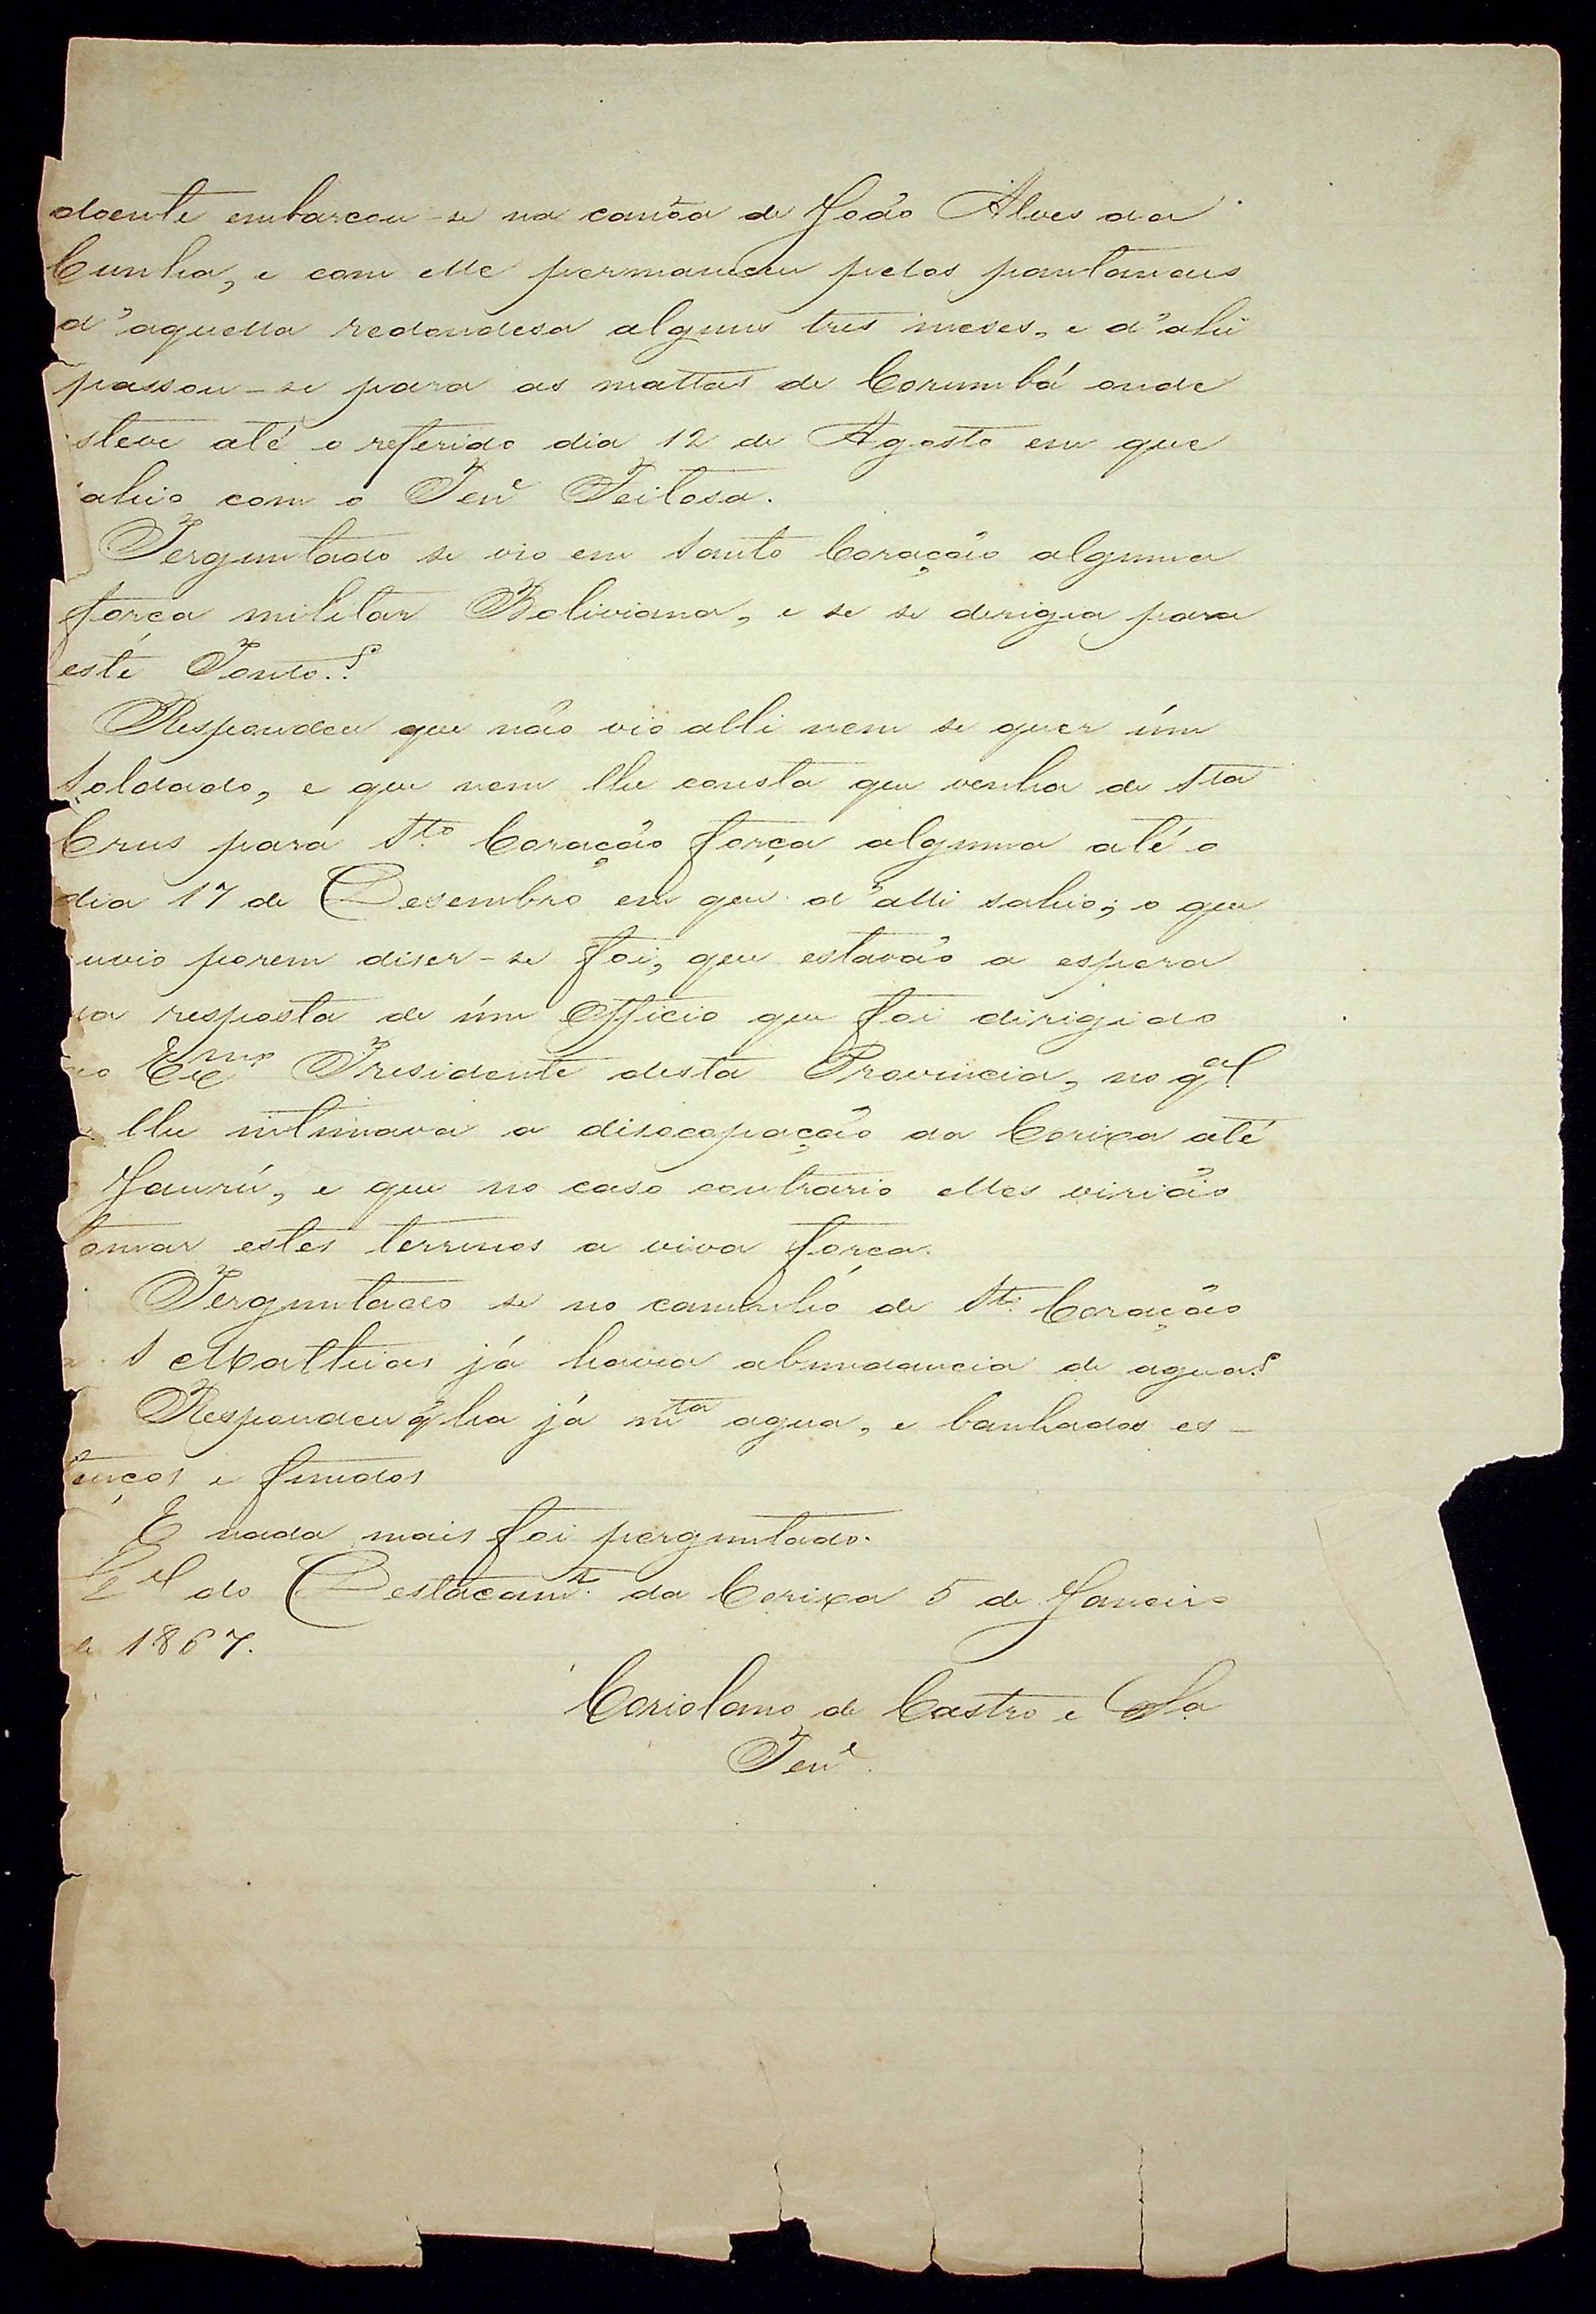 doente embarcou-se na canôa de João Alves da
Cunha, e com elle permaneceu pelos pantanaes
d'aquella redondesa alguns tres meses, e d'ahi
passou-se para as mattas de Corumbá onde
steve até o referido dia 12 de Agosto em que
ahio com o Tenᵉ Feitosa.
Perguntado se vio em Santo Coração alguma
força militar Boliviana, e se se derigia para
este Ponto.?
Respondeu que não vio alli nem se quer úm
Soldado, e que nem lhe consta que venha de Sta
Crus para Sto. Coração força alguma até o
dia 17 de Desembro em que d'alli sahio; o que
uvio porem diser-se foi, que estavão a espera
a resposta de úm Officio que foi dirigido
ao Exmo Presidente desta Provincia, no qal.
lhe intimava a disocopação da Corixa até
Jaurú, e que no caso contrario elles virião
tomar estes terrenos a viva força.
Perguntado se no caminho de Sto. Coração
a S Mathias já havia abundancia de agua?
Respondeu q ha já mta agua, e banhados es-
tenços e fundos
E nada mais foi perguntado.
Qel do Destacamto. da Corixa 5 de Janeiro
de 1867.
Coriolano de Castro e Sa
Tenᵉ.